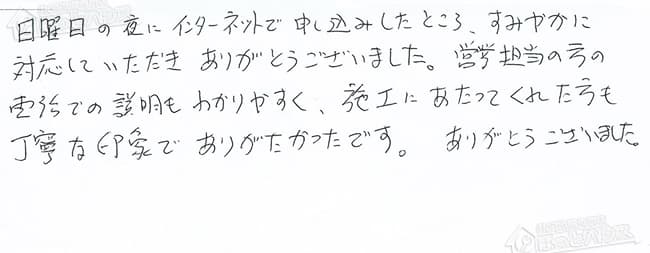 日曜日の夜にインターネットで申し込みしたところ、すみやかに
対応していただきありがとうございました。営業担当の方の
電話での説明もわかりやすく、施工にあたってくれた方も
丁寧な印象でありがたかったです。 ありがとうございました。